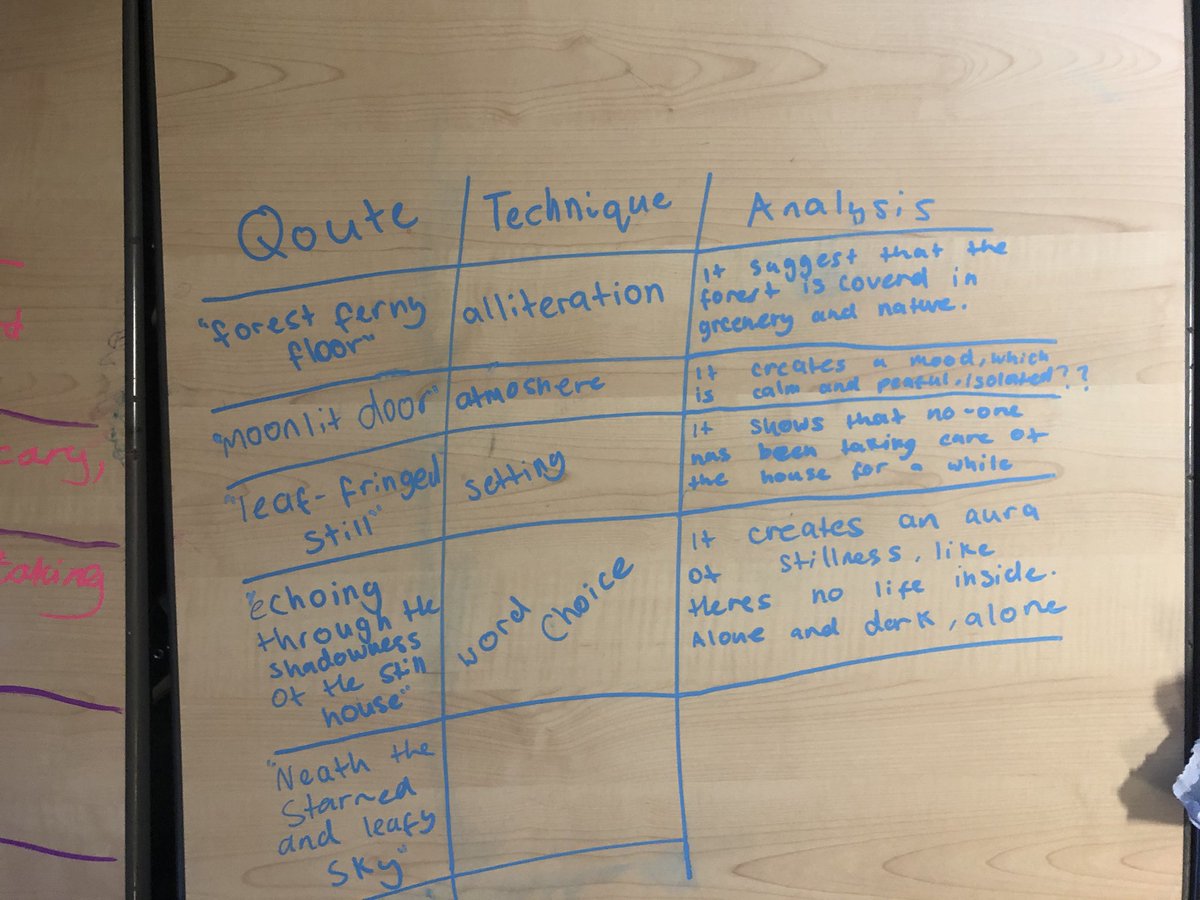 Qoute
Technique
Analysis
"forest ferny
floor"
alliteration
It suggest that the
forest is coverd in
greenery and nature.
"Moonlit door"
atmoshere
It creates a mood, which
is calm and peaful, isolated??
"leaf-fringed
still"
setting
It shows that no-one
has been taking care of
the house for a while
"echoing
through the
shadowness
of the still
house"
word choice
It creates an aura
of stillness, like
theres no life inside.
Alone and dark, alone
"Neath the
starred
and leafy
sky"
cary,
taking